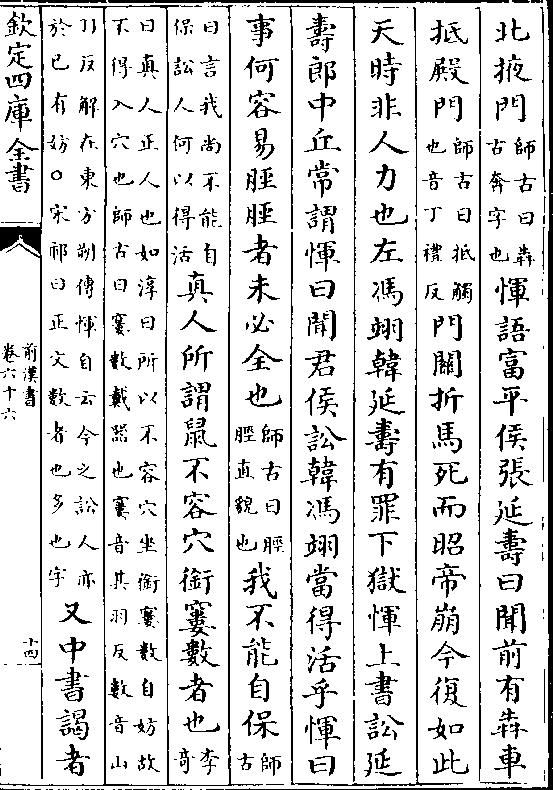 北掖門師古曰犇古奔字也惲語富平侯張延壽曰聞前有犇車
抵殿門師古曰抵觸也音丁禮反門關折馬死而昭帝崩今復如此
天時非人力也左馮翊韓延壽有罪下獄惲上書訟延
壽郎中丘常謂惲曰聞君侯訟韓馮翊當得活乎惲曰
事何容易脛脛者未必全也師古曰脛脛直貌也我不能自保師古
曰言我尚不能自保訟人何以得活真人所謂鼠不容穴銜窶數者也李奇
曰真人正人也如淳曰所以不容穴坐銜窶數自妨故不得入穴也師古曰窶數戴器也窶音其羽反數音山
羽反解在東方朔傳惲自云今之訟人亦於已有妨〇宋祁曰正文數者也多也字又中書謁者
欽定四庫全書
前漢書
卷六十六
十四